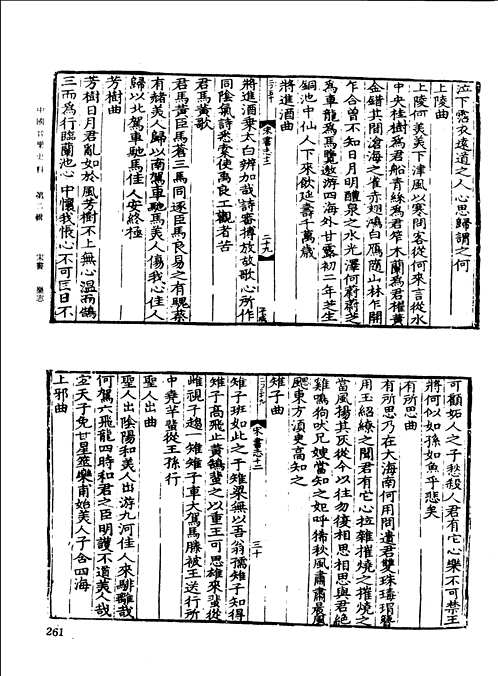 泣下霑衣遠道之人心思歸謂之何
上陵曲
上陵何美美下津風以寒問客從何來言從水
中央桂樹爲君船青絲爲君笮木蘭爲君櫂黃
金錯其間滄海之雀赤翅鴻白鴈隨山林乍開
乍合曾不知日月明醴泉之水光澤何蔚蔚芝
爲車龍爲馬覽遨游四海外甘露初二年芝生
銅池中仙人下來飲延壽千萬歲
將進酒曲
宋書志十二
二十九
將進酒乘太白辨加哉詩審搏放故歌心所作
同陰氣詩悉索使禹良工觀者苦
君馬黃歌
君馬黃臣馬蒼三馬同逐臣馬良易之有騩蔡
有赭美人歸以南駕車馳馬美人傷我心佳人
歸以北駕車馳馬佳人安終極
芳樹曲
芳樹日月君亂如於風芳樹不上無心溫而鵠
三而爲行臨蘭池心中懷我悵心不可匡目不
中國音樂史料 第二輯 宋書 樂志
可顧妬人之子愁殺人君有它心樂不可禁王
將何似如孫如魚乎悲矣
有所思曲
有所思乃在大海南何用問遺君雙珠瑇瑁簪
用玉紹繚之聞君有它心拉雜摧燒之摧燒之
當風揚其灰從今以往勿復相思相思與君絕
雞鳴狗吠兄嫂當知之妃呼狶秋風肅肅晨風
颸東方須臾高知之
雉子曲
宋書志十二
三十
雉子班如此之干雉梁無以吾翁孺雉子知得
雉子高飛止黃鵠蜚之以重王可思雄來蜚從
雌視子趨一雉雉子車大駕馬滕被王送行所
中堯羊蜚從王孫行
聖人出曲
聖人出陰陽和美人出游九河佳人來騑離哉
何駕六飛龍四時和君之臣明護不道美人哉
宜天子免甘星筮樂甫始美人子含四海
上邪曲
261